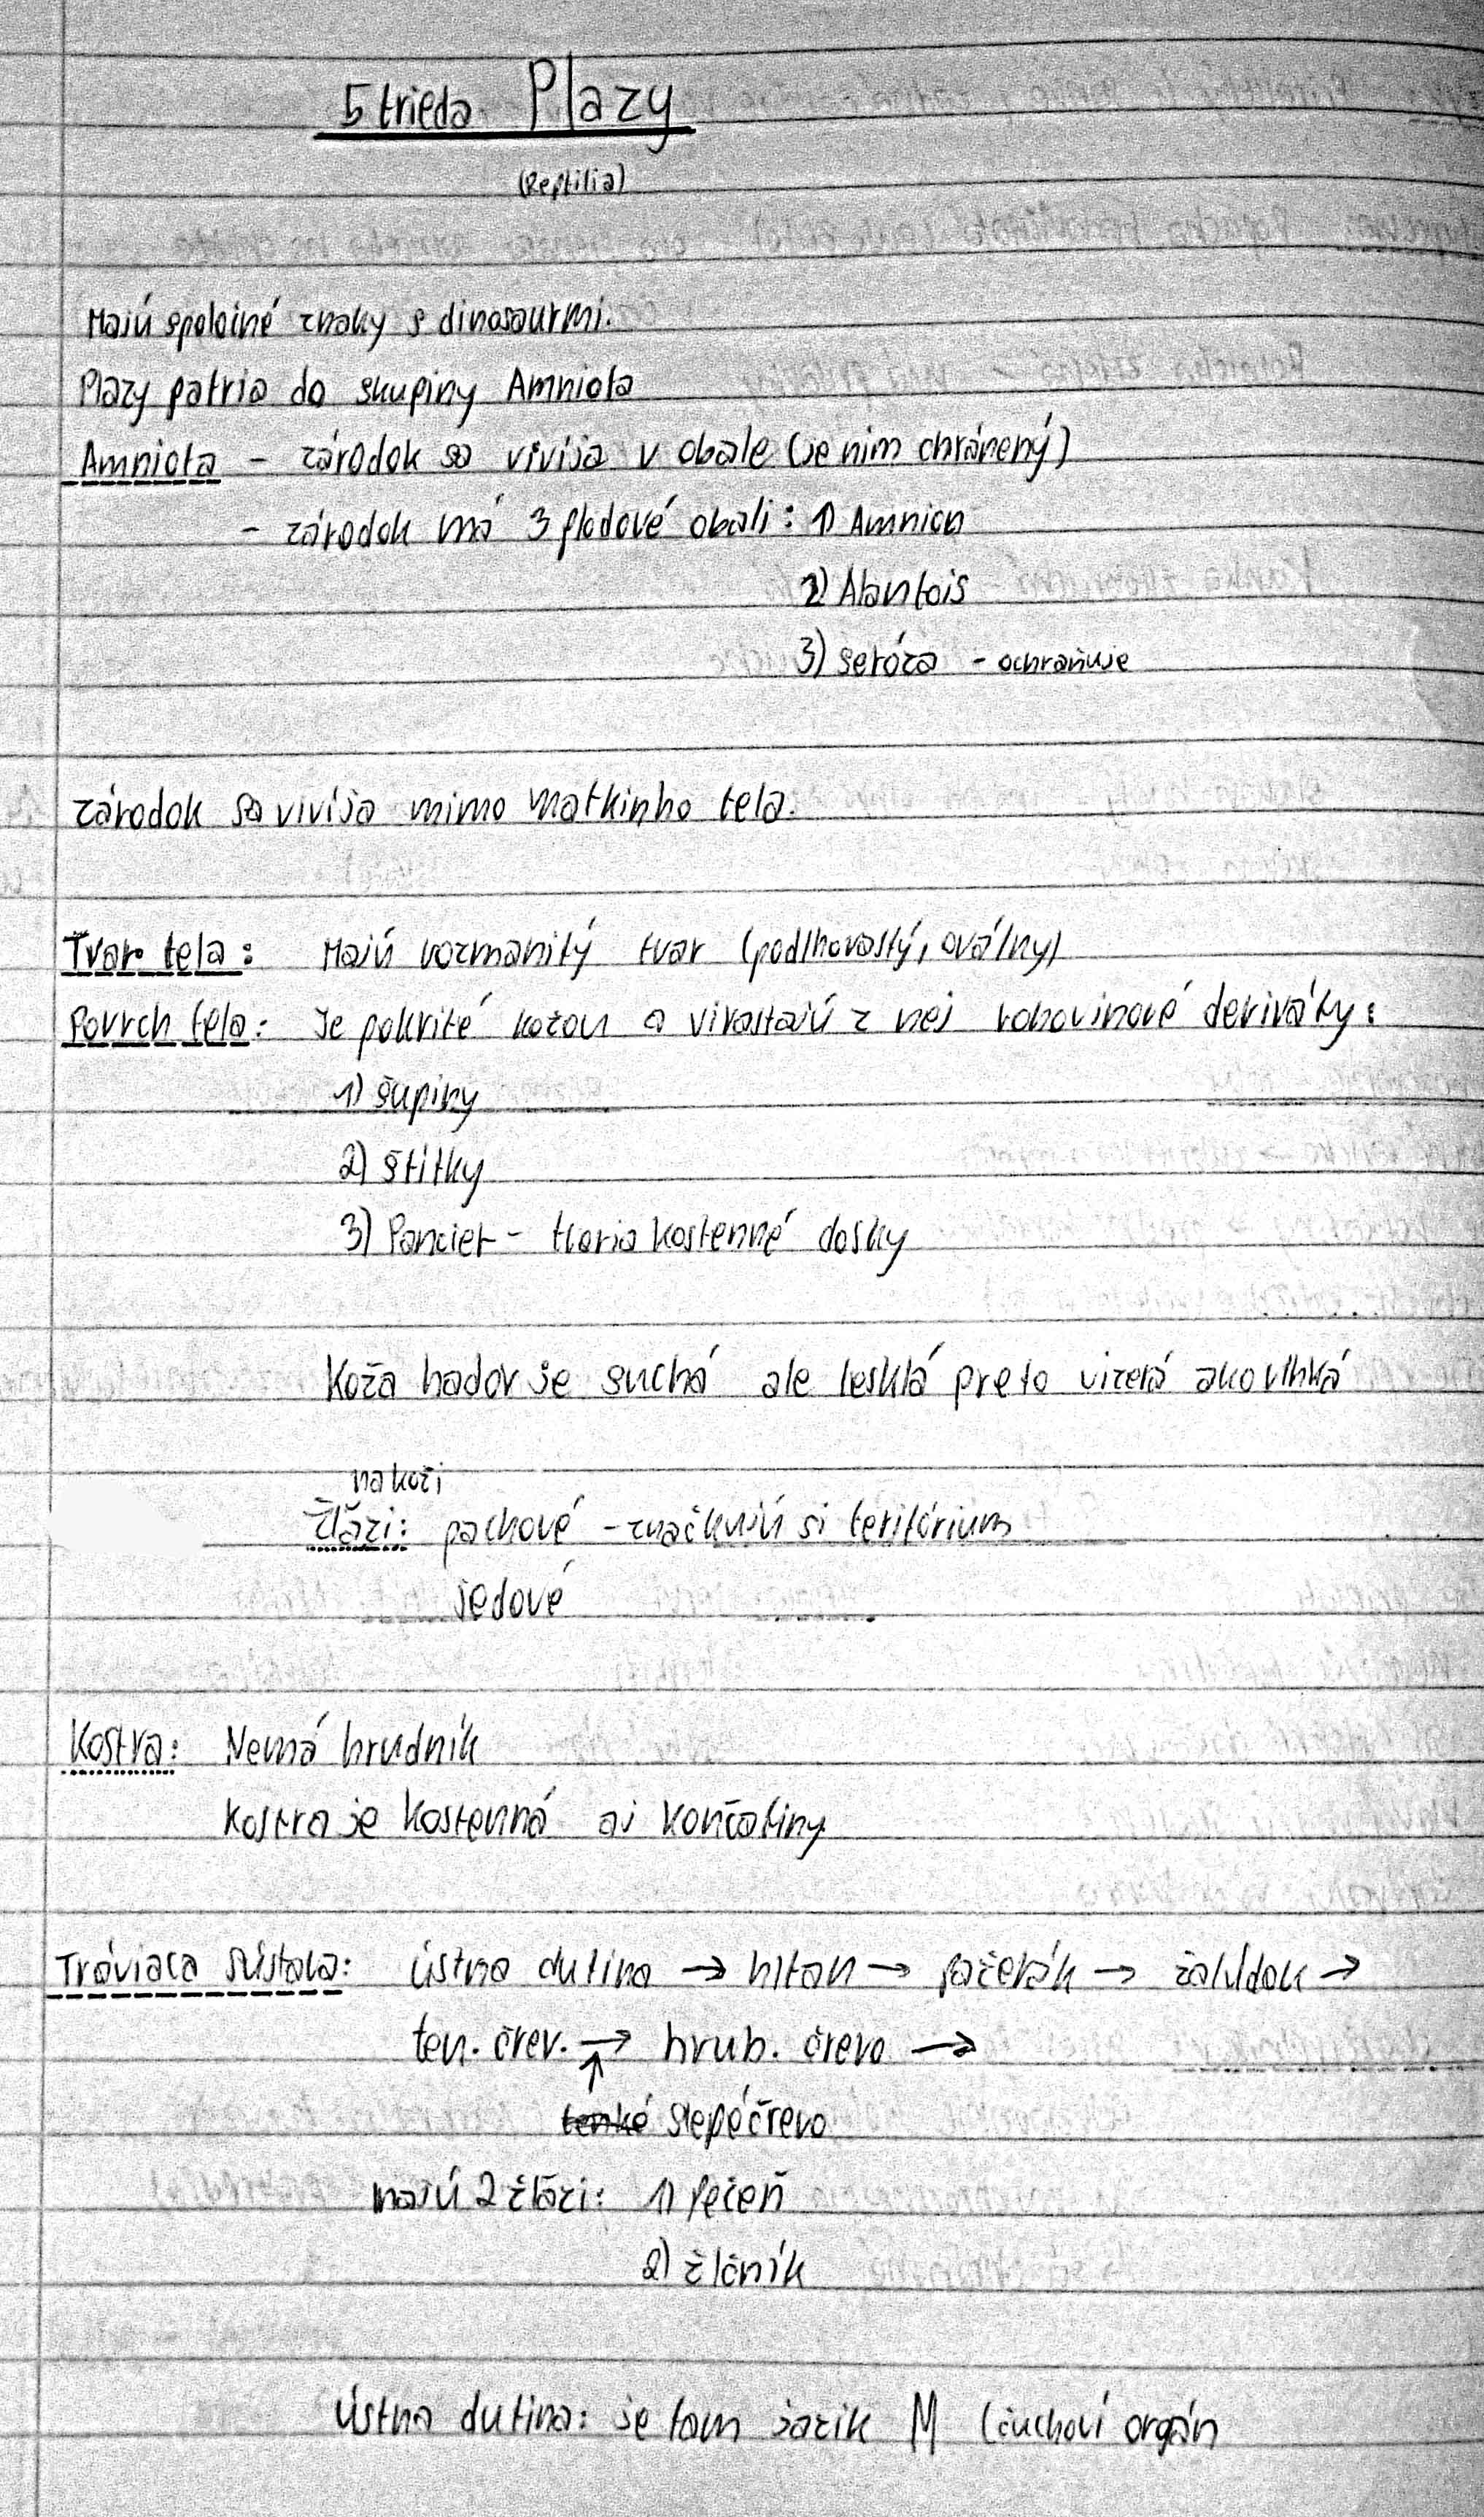 5 trieda Plazy
(Reptilia)
Majú spoločné znaky s dinosaurmi.
Plazy patria do skupiny Amniota
Amniota - zárodok sa vivíja v obale (je nim chránený)
- zárodok má 3 plodové obali: 1) Amnion
2) Alantois
3) seróza - ochraňuje
zárodok sa vivíja mimo matkinho tela.
Tvar tela: Majú rozmanitý tvar (podlhovastý, oválny)
Povrch tela: Je pokrité kožou a virastajú z nej rohovinové deriváty:
1) šupiny
2) štítky
3) Pancier - tvoria kostenné dosky
Koža hadov je suchá ale lesklá preto vizerá ako vlhká
na koži
žľázi: pachové - značkujú si teritórium
jedové
Kostra: Nemá hrudník
kostra je kostenná aj končatiny
Tráviaca sústava: ústna dutina → hltan → pažerák → žalúdok →
ten. črev. → hrub. črevo →
↑
tenké slepéčrevo
majú 2 žľázi: 1) pečeň
2) žlčník
ústna dutina: je tam jazik M (čuchoví orgán